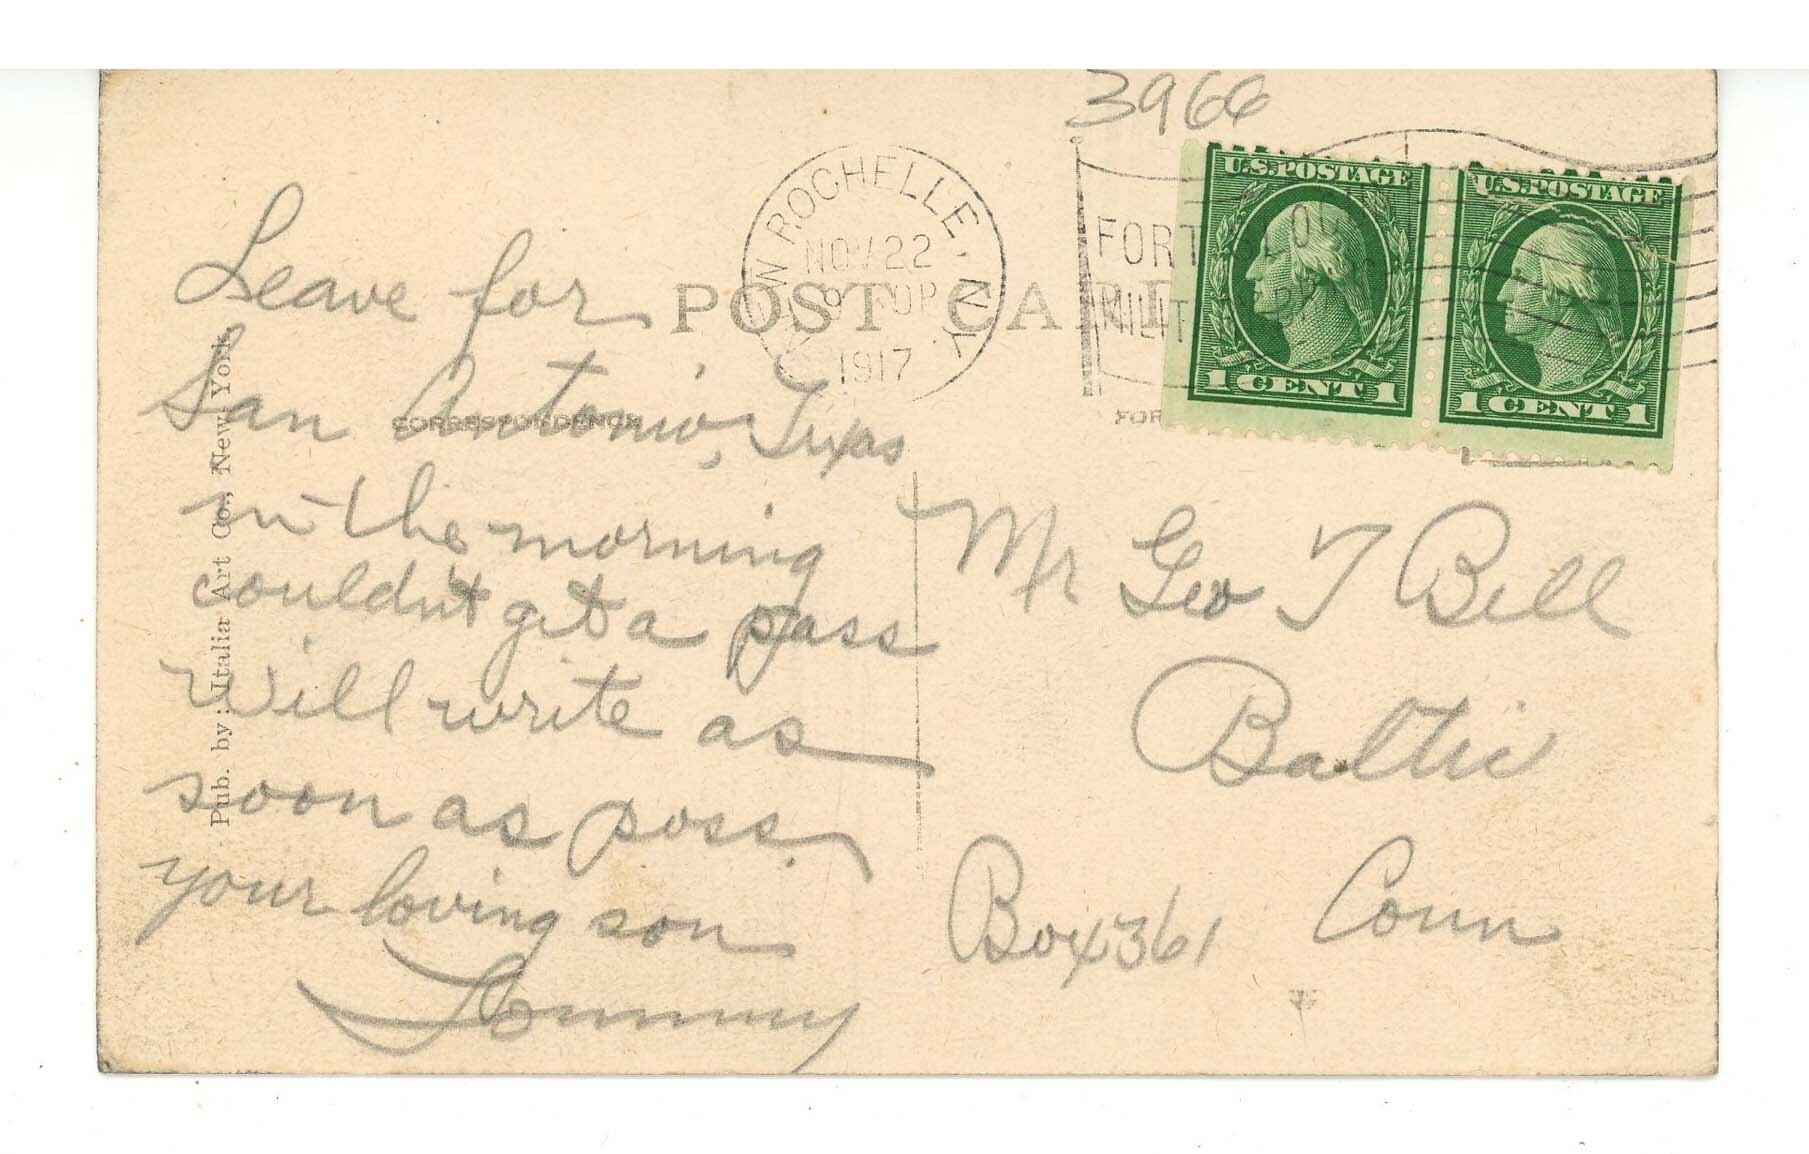 3966
NEW ROCHELLE. N.Y.
NOV 22
1917
FORT SLOCUM
MILIT
U.S. POSTAGE
1 CENT 1
U.S. POSTAGE
1 CENT 1
POST CARD
CORRESPONDENCE
FOR
Pub. by: Italia Art Co., New York
Leave for
San Antonio, Texas
in the morning
couldn't get a pass
Will write as
soon as poss.
your loving son
Tommy
Mr Geo T Bell
Baltic
Conn
Box 361